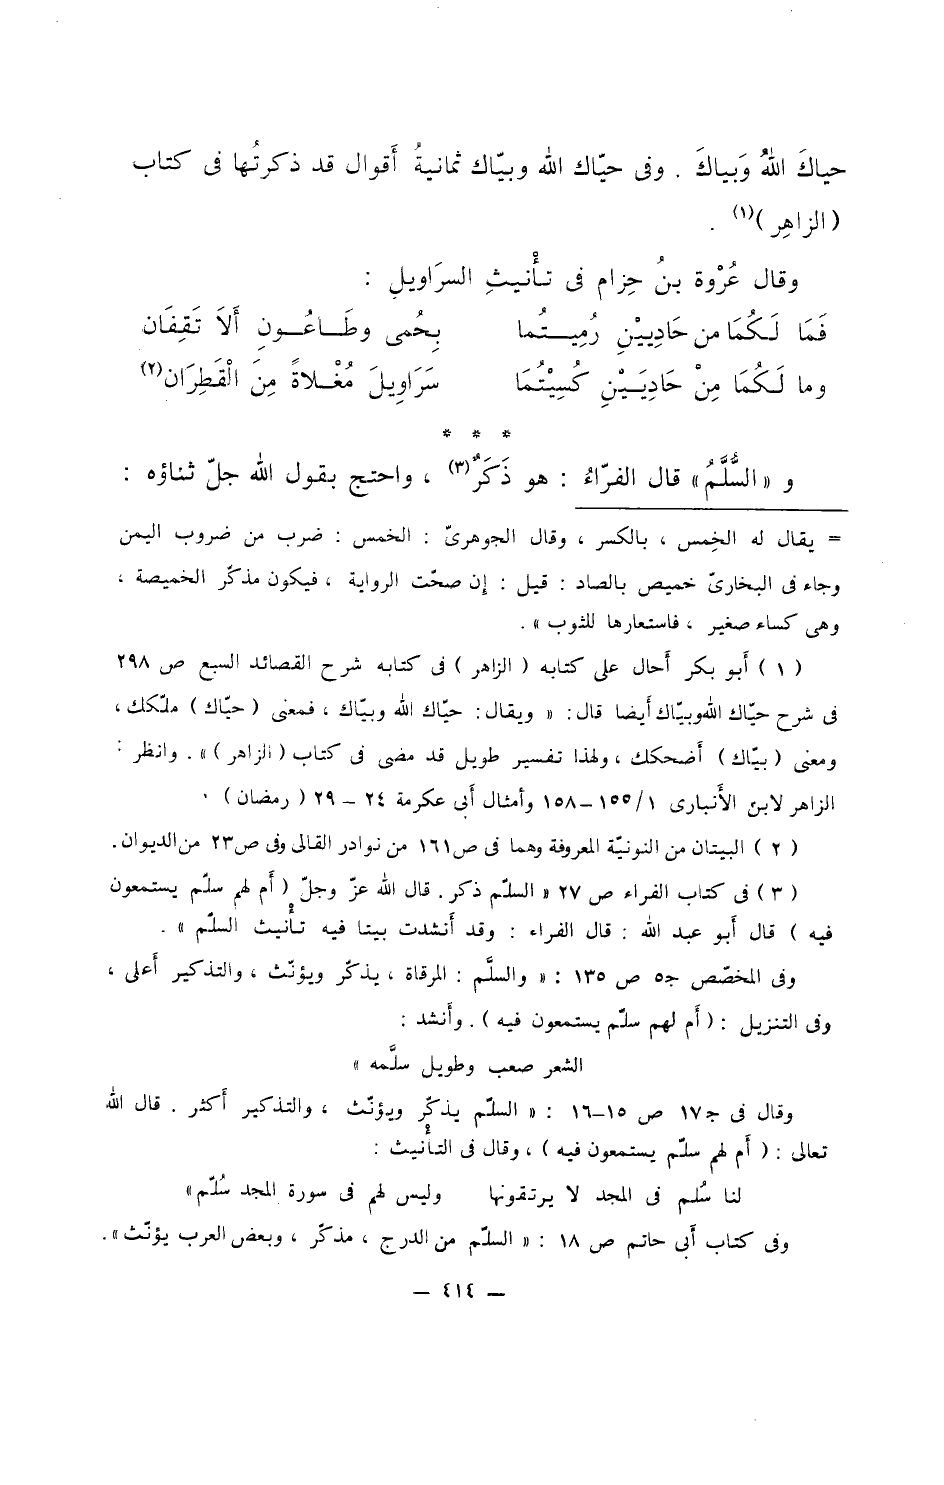 حياكَ اللهُ وَبياكَ . وفى حيّاك الله وبيّاك ثمانيةُ أَقوال قد ذكرتُها فى كتاب
(الزاهِر)(١) .
وقال عُرْوة بنُ حِزام فى تأْنيثِ السرَاويلِ :
فَمَا لَكُمَا من حَادِيَيْنِ رُمِيتُما بِحُمى وطَاعُونٍ أَلاَ تَقِفَان
وما لَكُمَا مِنْ حَادِيَيْنِ كُسِيْتُمَا سَرَاوِيلَ مُغْلاةً مِنَ الْقَطِرَان(٢)
* * *
و «السُّلَّمُ» قال الفرّاءُ : هو ذَكَرٌ(٣) ، واحتج بقول الله جلّ ثناؤه :
= يقال له الخِمس ، بالكسر ، وقال الجوهرىّ : الخمس : ضرب من ضروب اليمن
وجاء فى البخارىّ خميص بالصاد : قيل : إن صحّت الرواية ، فيكون مذكّر الخميصة ،
وهى كساء صغير ، فاستعارها للثوب » .
( ١ ) أبو بكر أحال على كتابه ( الزاهر ) فى كتابه شرح القصائد السبع ص ٢٩٨
فى شرح حيّاك الله وبيّاك أيضا قال: « ويقال: حيّاك الله وبيّاك ، فمعنى (حيّاك) ملّكك ،
ومعنى (بيّاك) أضحكك ، ولهذا تفسير طويل قد مضى فى كتاب (الزاهر)» . وانظر :
الزاهر لابن الأَنبارى ١/ ١٥٥–١٥٨ وأمثال أبى عكرمة ٢٤ – ٢٩ ( رمضان ) .
( ٢ ) البيتان من النونيّة المعروفة وهما فى ص١٦١ من نوادر القالى وفى ص٢٣ من الديوان.
( ٣ ) فى كتاب الفراء ص ٢٧ « السلّم ذكر. قال الله عزّ وجلّ ( أَم لهم سلّم يستمعون
فيه ) قال أبو عبد الله : قال الفراء : وقد أنشدت بيتا فيه تأنيث السلّم » .
وفى المخصّص ج٥ ص ١٣٥ : « والسلَّم : المرقاة ، يذكّر ويؤنّث ، والتذكير أعلى ،
وفى التنزيل : ( أم لهم سلّم يستمعون فيه ) . وأَنشد :
الشعر صعب وطويل سلَّمه »
وقال فى ج١٧ ص ١٥–١٦ : « السلّم يذكّر ويؤنّث ، والتذكير أَكثر . قال الله
تعالى : ( أَم لهم سلّم يستمعون فيه ) ، وقال فى التأنيث :
لنا سُلم فى المجد لا يرتقونها وليس لهم فى سورة المجد سُلّم»
وفى كتاب أَبى حاتم ص ١٨ : « السلّم من الدرج ، مذكّر ، وبعض العرب يؤنّث».
– ٤١٤ –